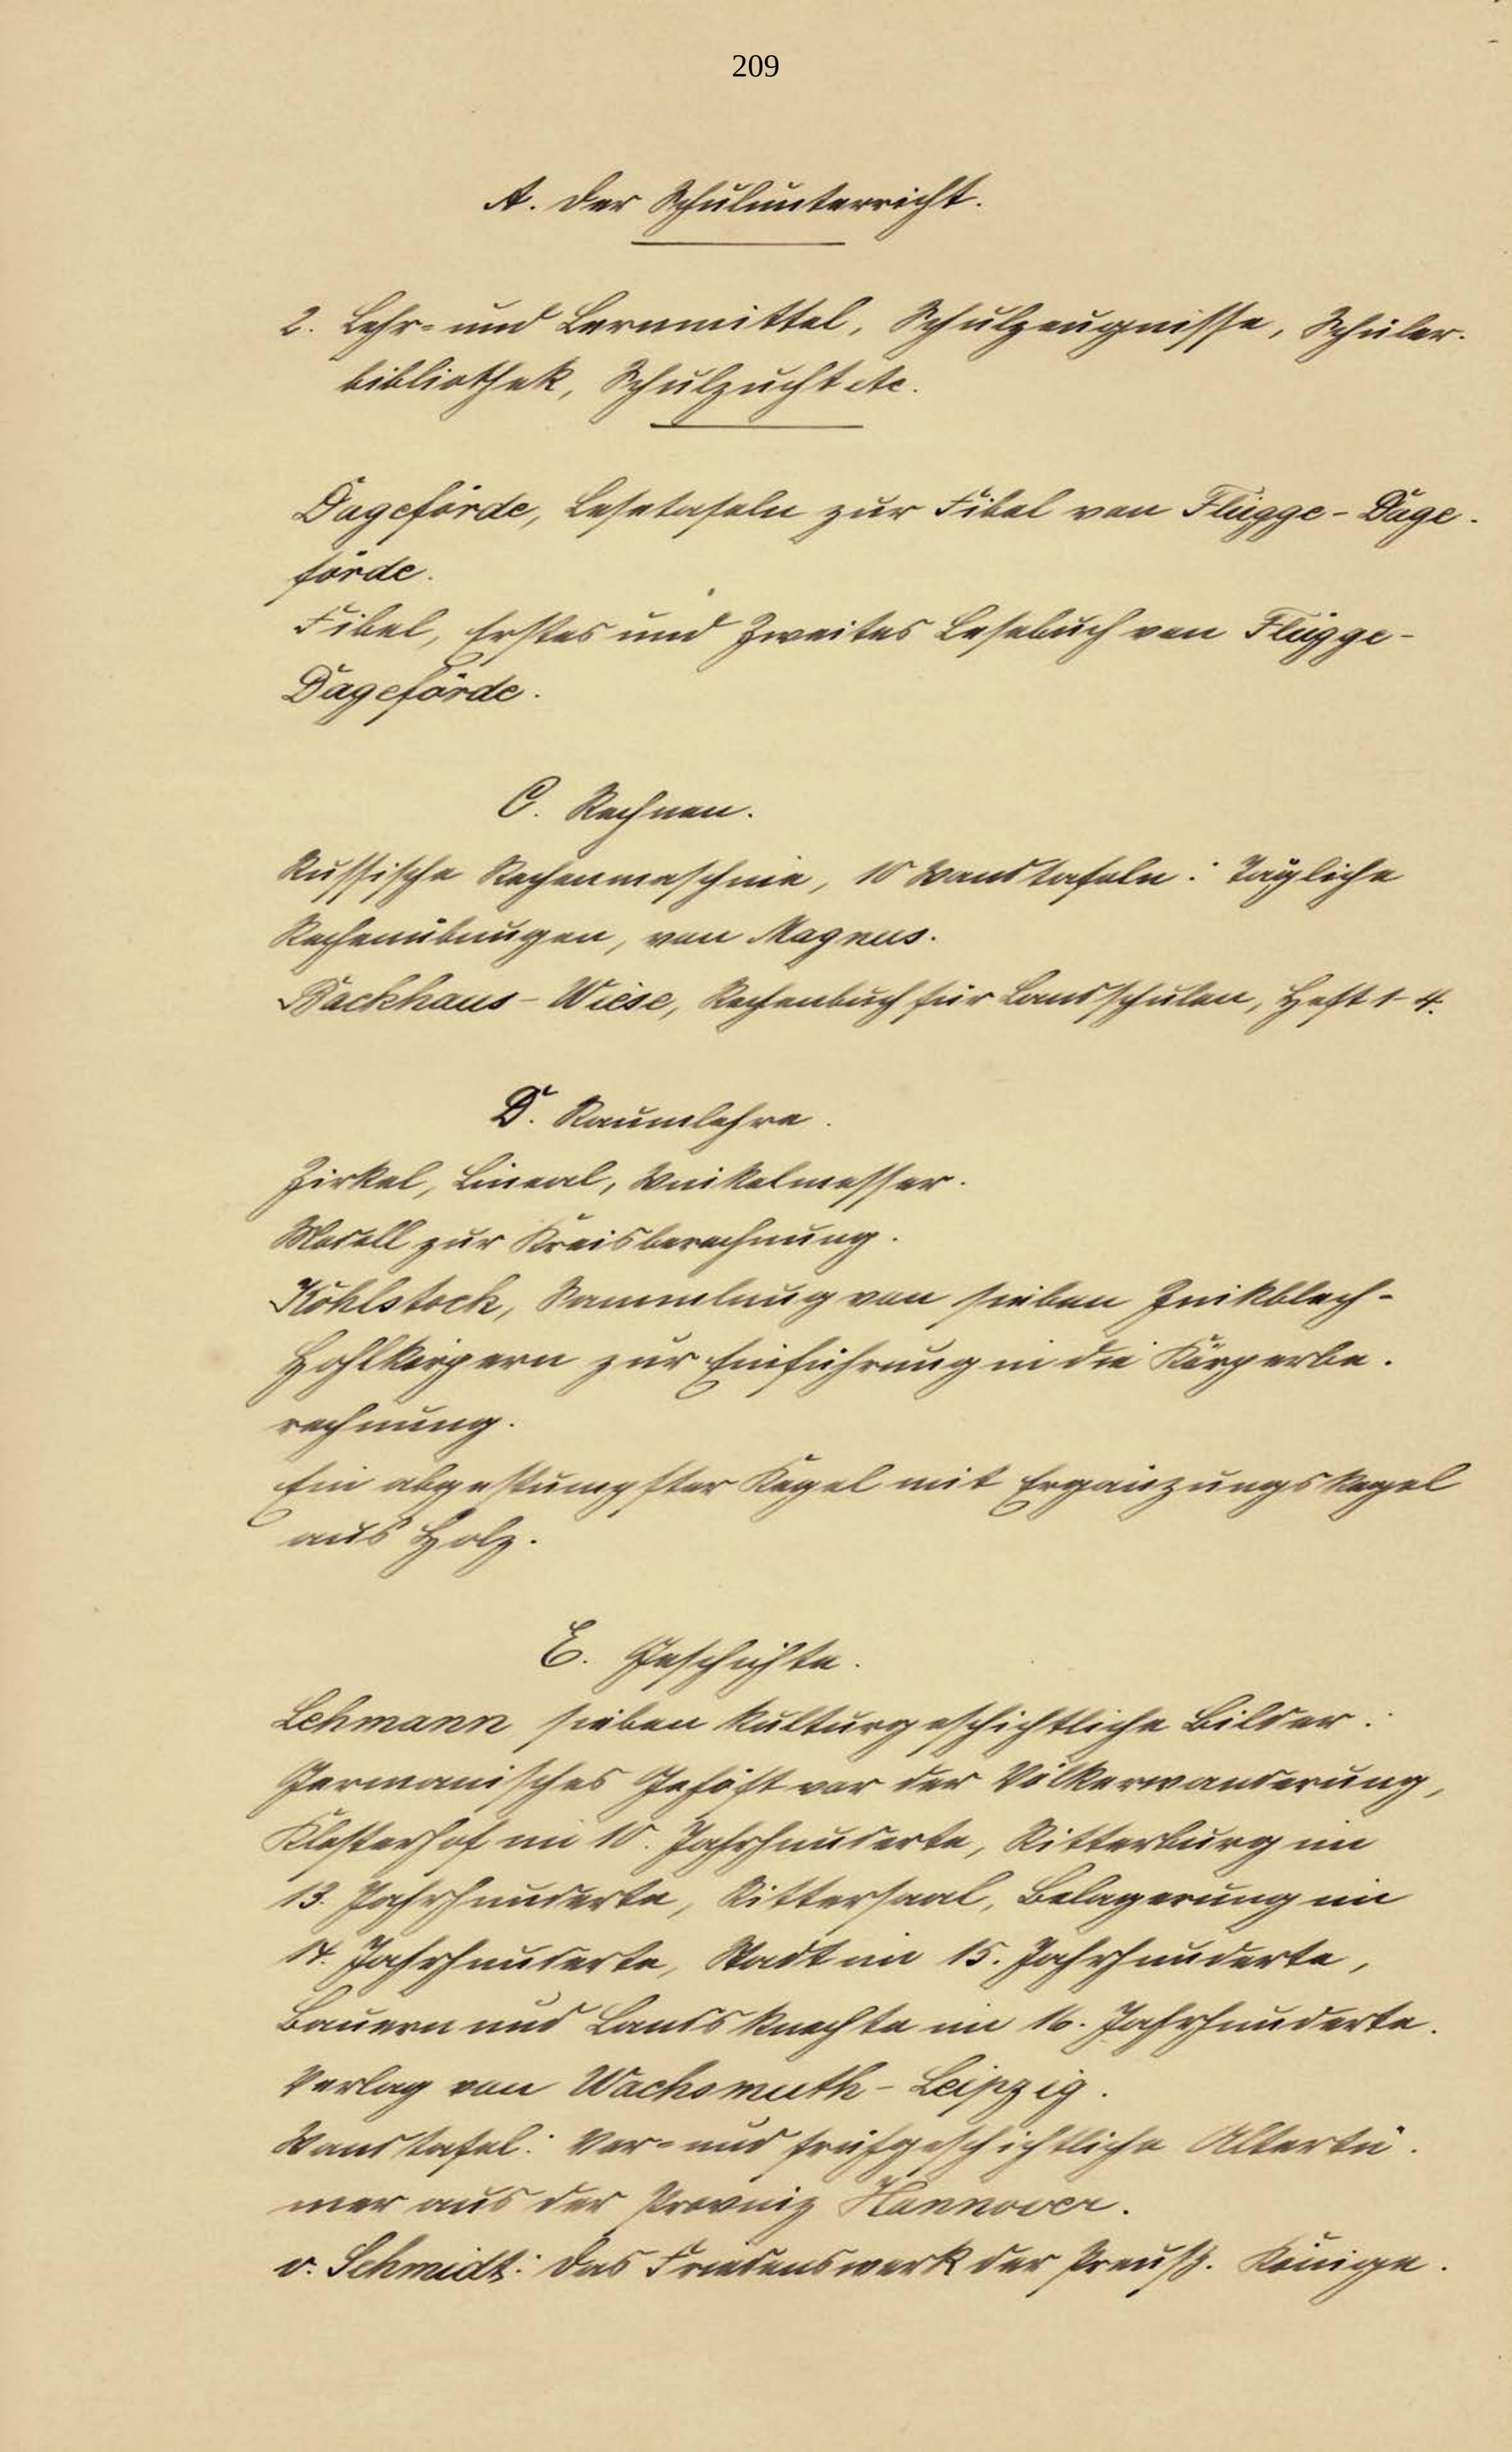 209
A. Der Schulunterricht.
2. Lehr- und Lernmittel, Schulzeugnisse, Schüler-
bibliothek, Schulzucht etc.
Dageförde, Lesetafeln zur Fibel von Flügge-Dage-
förde.
Fibel, Erstes und Zweites Lesebuch von Flügge-
Dageförde.
C. Rechnen.
Russische Rechenmaschine, 10 Wandtafeln: Tägliche
Rechenübungen, von Magnus.
Backhaus-Wiese, Rechenbuch für Landschulen, Heft 1-4.
D. Raumlehre.
Zirkel, Lineal, Winkelmesser.
Modell zur Kreisberechnung.
Köhlstock, Sammlung von sieben Zinkblech-
Hohlkörpern zur Einführung in die Körperbe-
rechnung.
Ein abgestumpfter Kegel mit Ergänzungskegel
aus Holz.
E. Geschichte.
Lehmann sieben kulturgeschichtliche Bilder:
Germanisches Gehöft vor der Völkerwanderung,
Klosterhof im 10. Jahrhunderte, Ritterburg im
13. Jahrhunderte, Rittersaal, Belagerung im
14. Jahrhunderte, Stadt im 15. Jahrhunderte,
Bauern und Landsknechte im 16. Jahrhunderte.
Verlag von Wachsmuth-Leipzig.
Wandtafel: Vor- und frühgeschichtliche Altertü-
mer aus der Provinz Hannover.
v. Schmidt: Das Friedenswerk der Preuß. Könige.